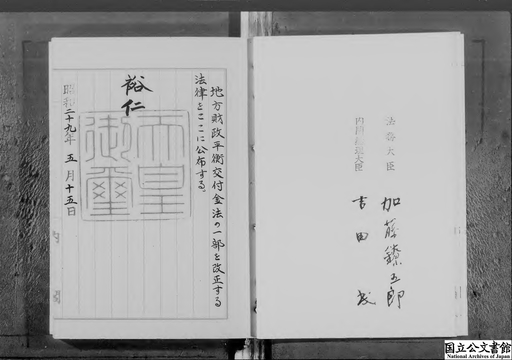 地方財政平衡交付金法の一部を改正する
法律をここに公布する。
裕仁
天皇
御璽
昭和二十九年五月十五日
法務大臣 加藤鐐五郎
内閣総理大臣 吉田茂
国立公文書館
National Archives of Japan